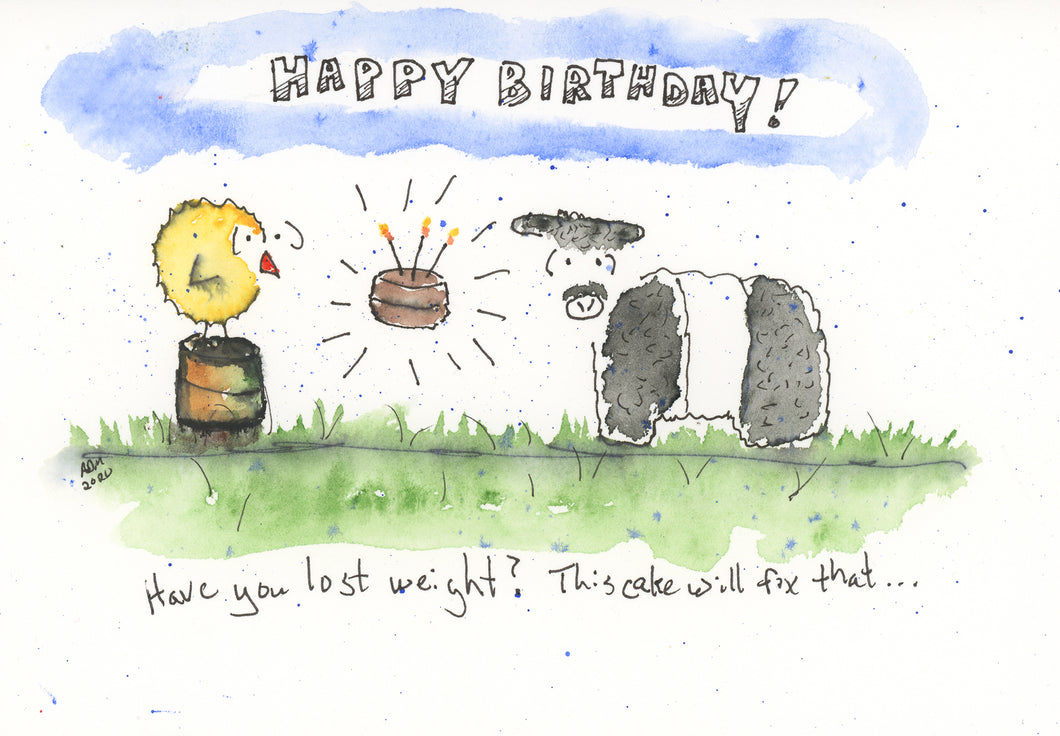 HAPPY BIRTHDAY!
ADM
2020
Have you lost weight? This cake will fix that...